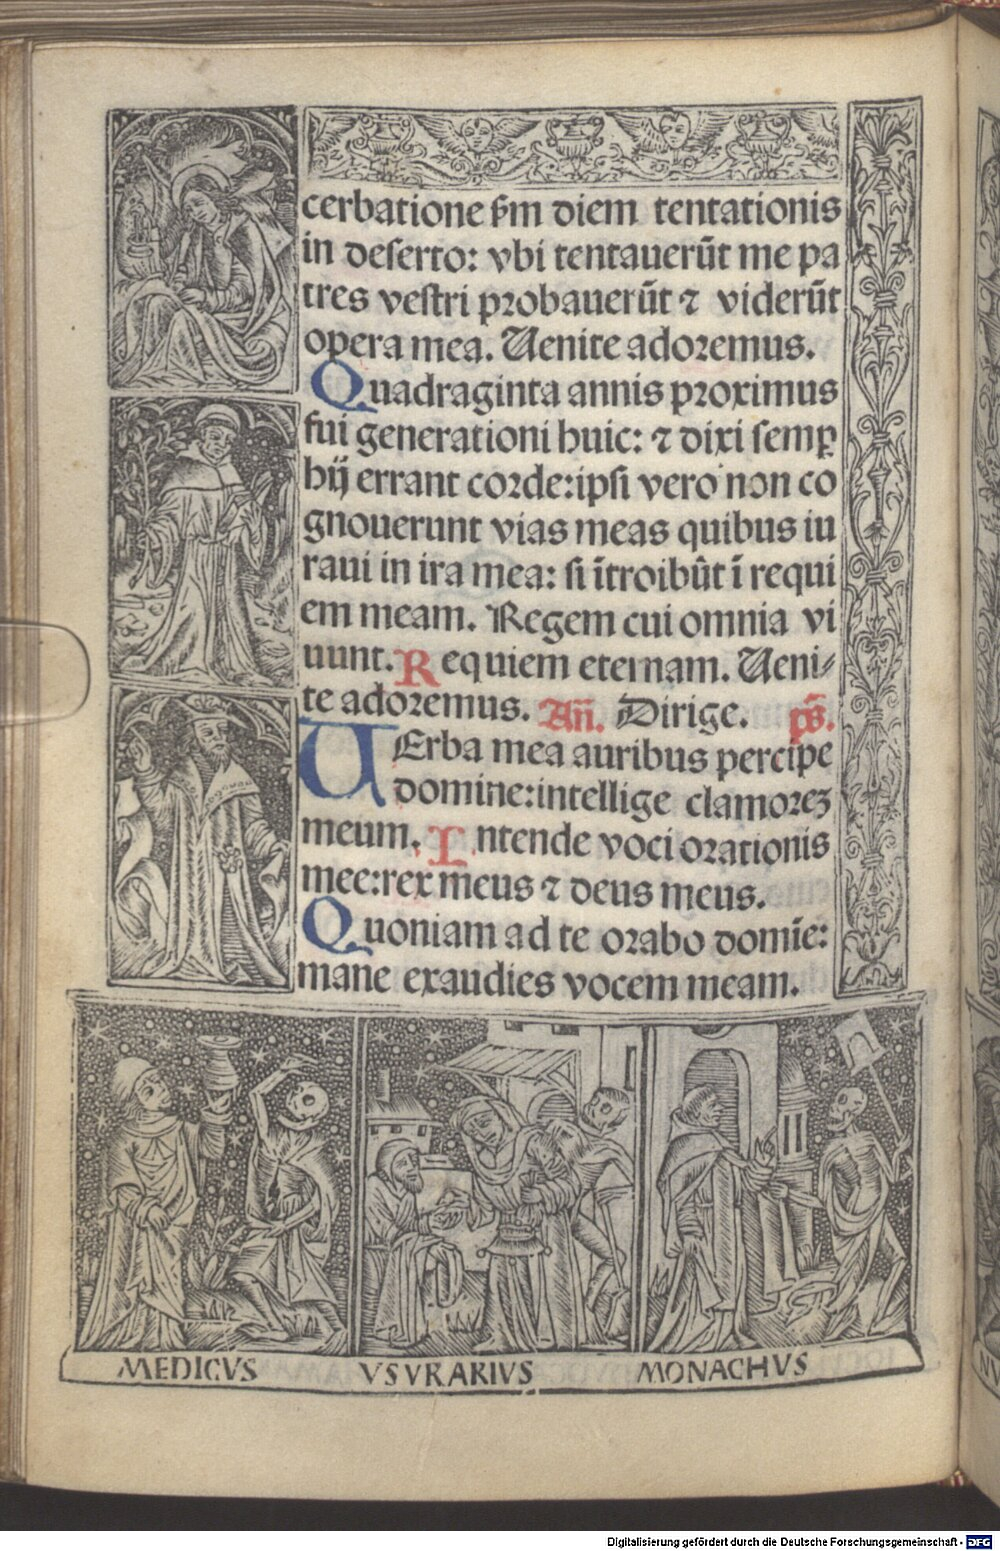 cerbatione ẜm diem tentationis
in deserto: vbi tentauerūt me pa
tres vestri probauerūt ⁊ viderūt
opera mea. Uenite adoremus.
Quadraginta annis proximus
fui generationi huic: ⁊ dixi semꝑ
hij errant corde: ipsi vero non co
gnouerunt vias meas quibus iu
raui in ira mea: si ītroibūt ī requi
em meam. Regem cui omnia vi
uunt. Requiem eternam. Ueni⸗
te adoremus. Añ. Dirige. ps̄.
UErba mea auribus percipe
domine: intellige clamoreꝫ
meum. Intende voci orationis
mee: rex meus ⁊ deus meus.
Quoniam ad te orabo domīe:
mane exaudies vocem meam.
MEDICVS VSVRARIVS MONACHVS
Digitalisierung gefördert durch die Deutsche Forschungsgemeinschaft - DFG